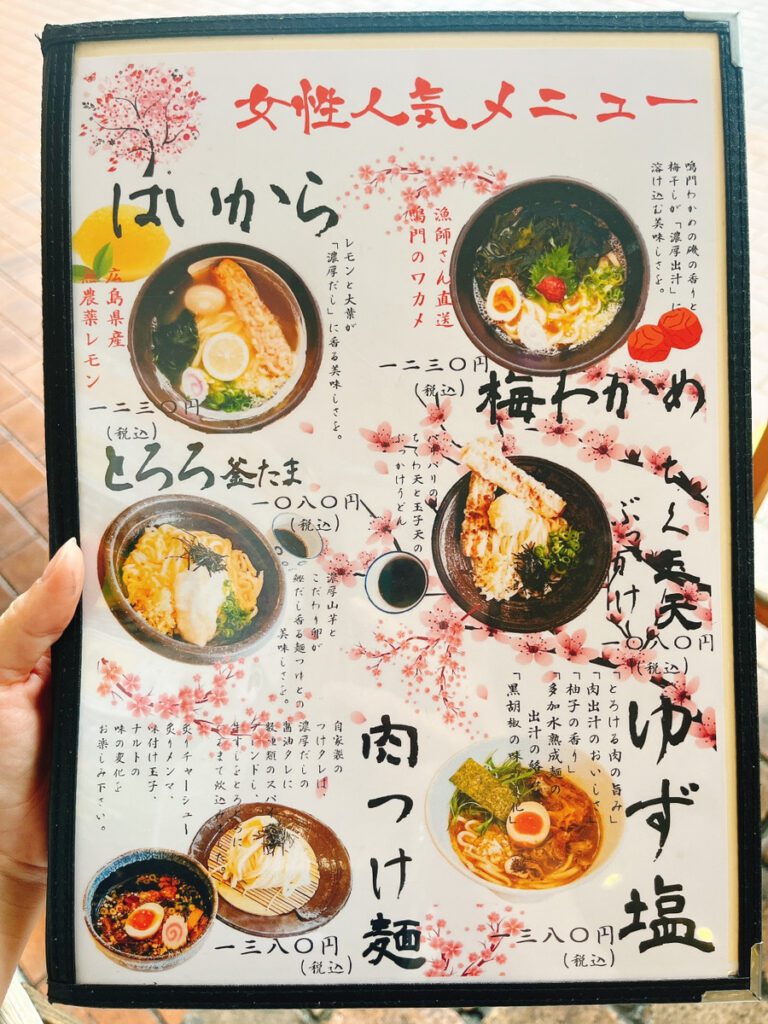 女性人気メニュー
はいから
広島県産
農薬レモン
レモンと大葉が
「濃厚だし」に香る美味しさを。
一二三〇円
(税込)
鳴門わかめの磯の香りと
梅干しが「濃厚出汁」に
溶け込む美味しさを。
漁師さん直送
鳴門のワカメ
一二三〇円
(税込)
梅わかめ
とろろ釜たま
一〇八〇円
(税込)
濃厚山芋と
こだわり卵が
鰹だし香る麺つけとの
美味しさを。
ちく玉天
ぶっかけ
パリパリの
ちくわ天と玉子天の
ぶっかけうどん
一〇八〇円
(税込)
肉つけ麺
自家製の
つけタレは、
濃厚だしの
醤油タレに
数種類のスパ
ブレンドし、
牛すじをとろ
炊込
炙りチャーシュー
炙りメンマ、
味付け玉子、
ナルトの
味の変化を
お楽しみ下さい。
一三八〇円
(税込)
ゆず塩
「とろける肉の旨み」
「肉出汁のおいしさ
「柚子の香り」
「多加水熟成麺の
出汁の
「黒胡椒の味
一三八〇円
(税込)